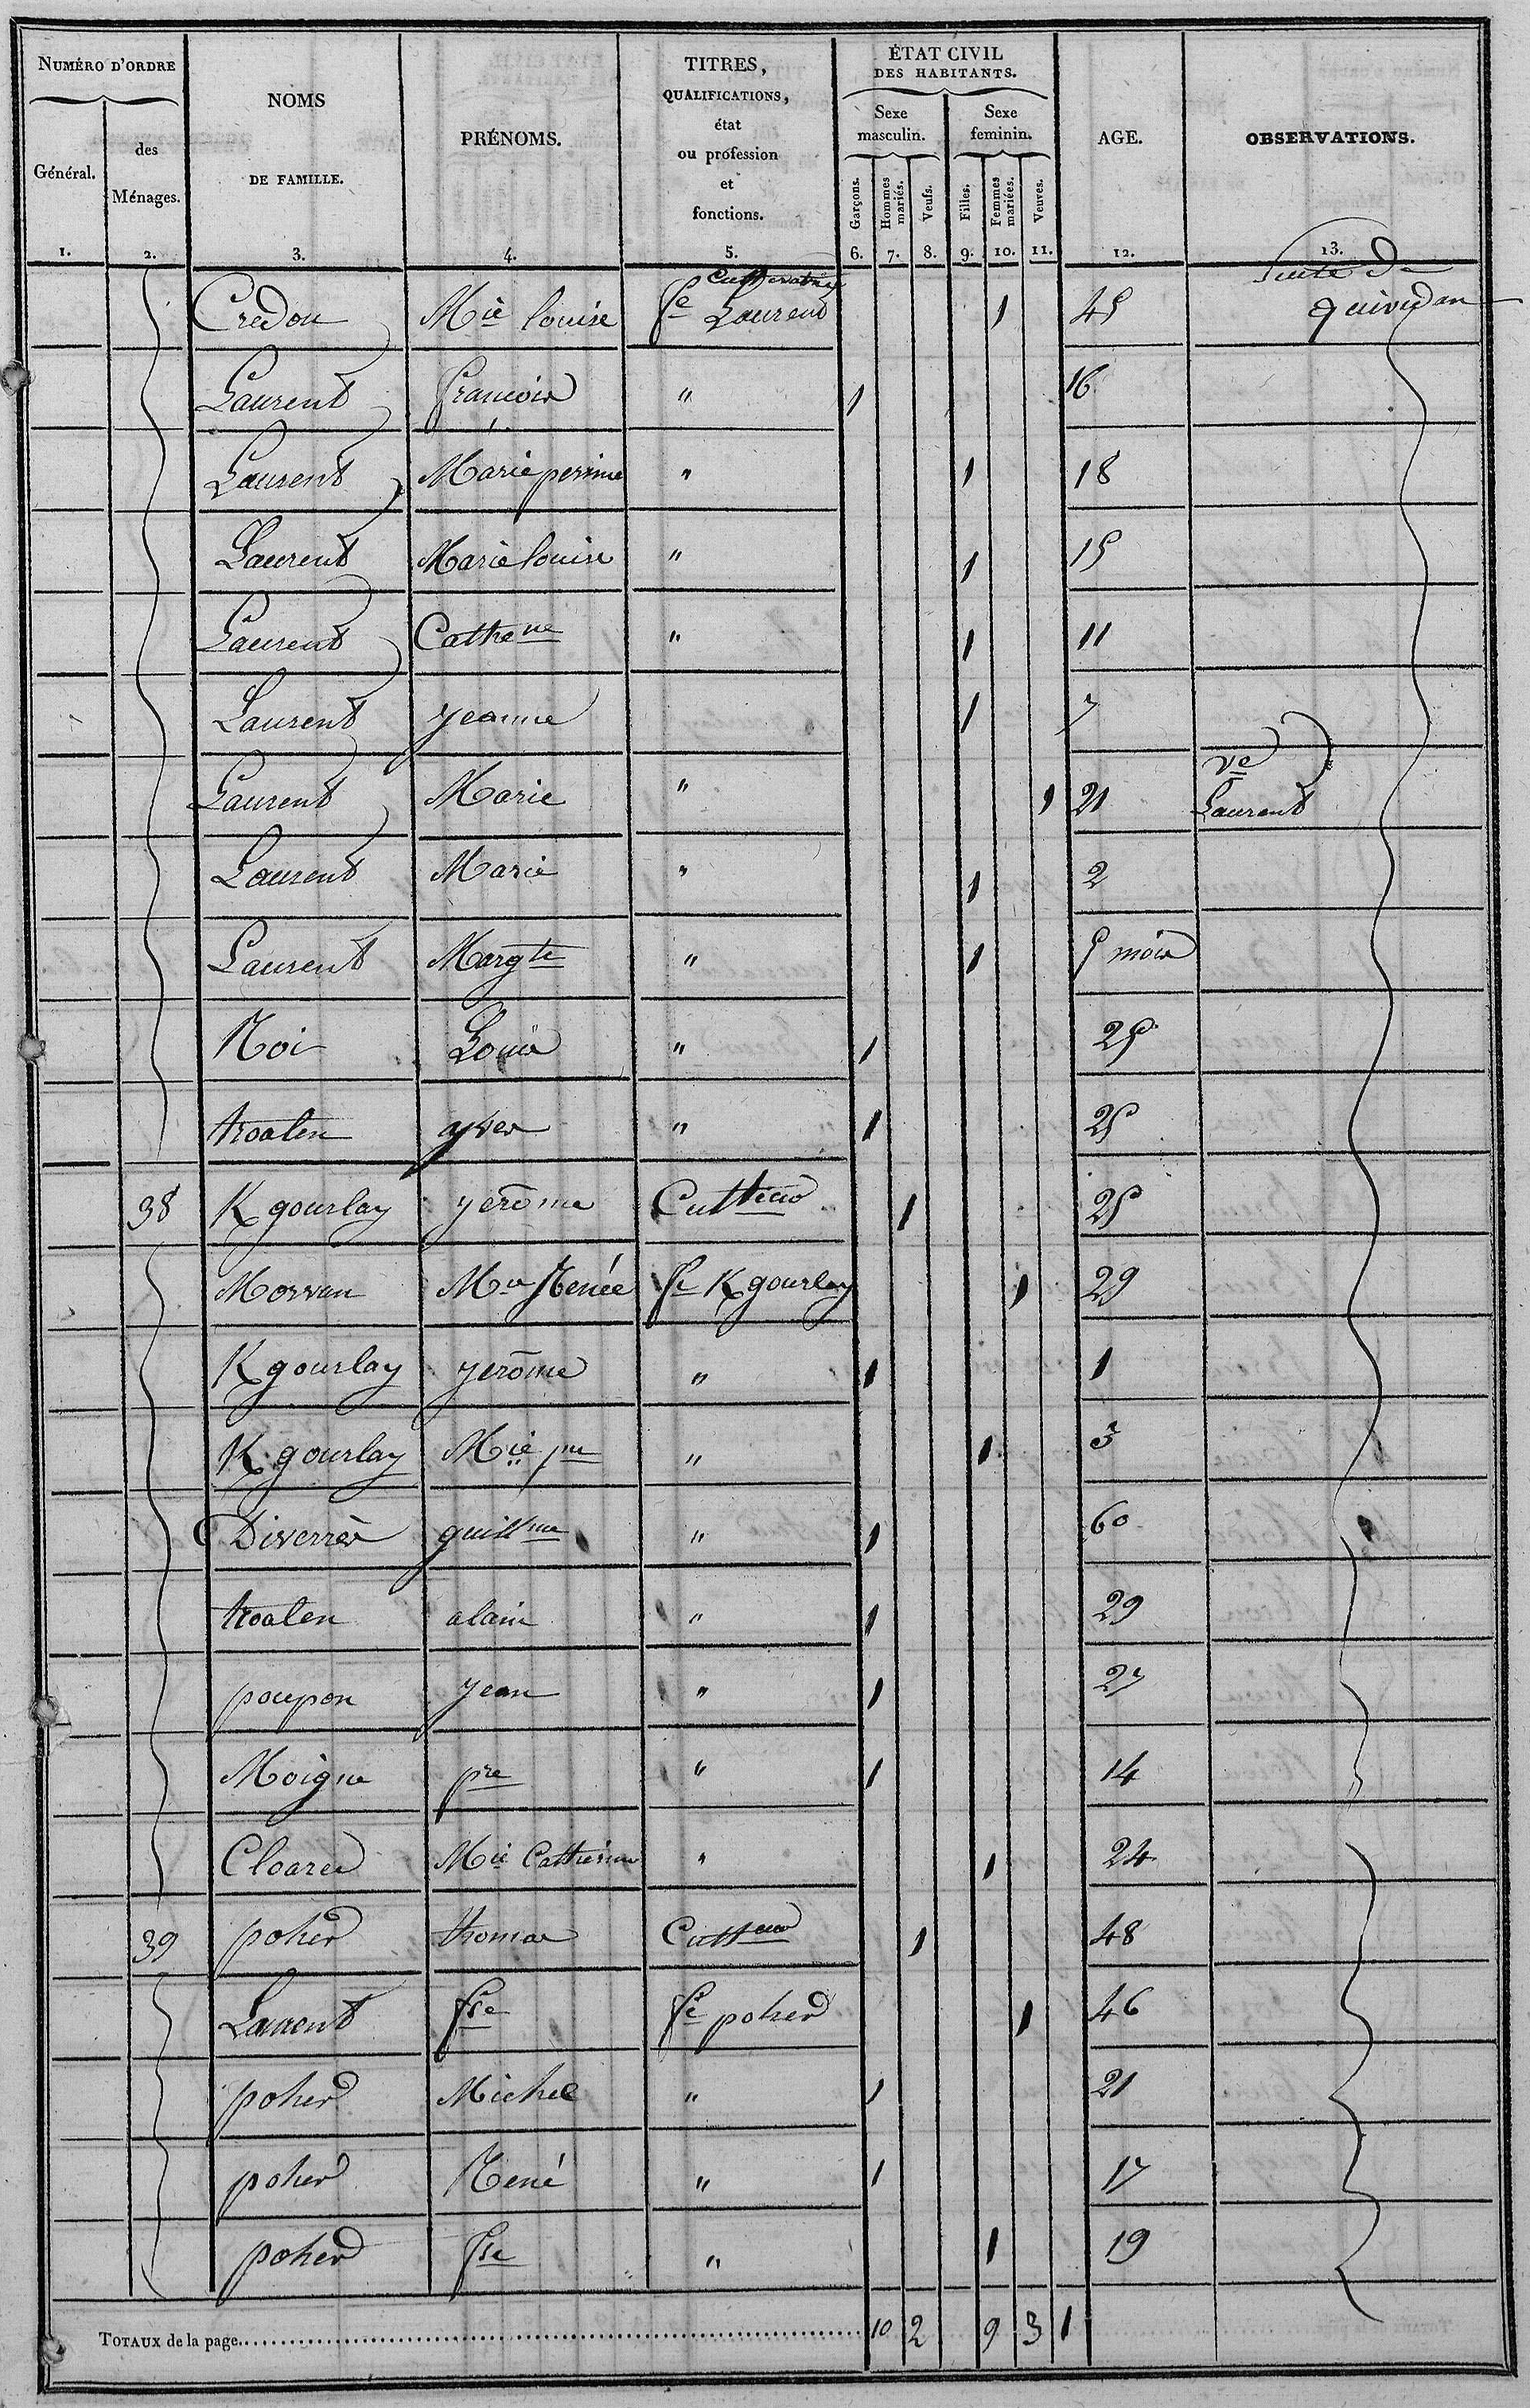 NUMÉRO D'ORDRE
Général.
des
Ménages.
NOMS
DE FAMILLE.
PRÉNOMS.
TITRES,
QUALIFICATIONS,
état
ou profession
et
fonctions.
ÉTAT CIVIL
DES HABITANTS.
Sexe
masculin.
Sexe
feminin.
Garçons.
Hommes
mariés.
Veufs.
Filles.
Femmes
mariées.
Veuves.
AGE.
OBSERVATIONS.
1. 2. 3. 4. 5. 6. 7. 8. 9. 10. 11. 12. 13.
Suite de
Credou Mie louise fe Laurent 1 45 quividan
Laurent francois " 1 16
Laurent Marie perrine " 1 18
Laurent Marie louise " 1 15
Laurent Cathene " 1 11
Laurent jeanne 1 7
Laurent Marie " 1 21 ve Laurent
Laurent Marie " 1 2
Laurent Margte " 1 5 mois
Noi Louis " 1 25
troalen yves " 1 25
38 K gourlay jerôme Cultteur 1 25
Morvan Mie Renée fe K gourlay 1 29
K gourlay jerôme " 1 1
K gourlay Mie pne " 1 3
Diverrès guillme " 1 60
troalen alain " 1 29
poupon jean " 1 27
Moigne pre " 1 14
Cloarec Mie Catherine " 1 24
39 poher thomas Cultteur 1 48
Laurent fse fe poher 1 46
poher Michel " 1 21
poher René " 1 17
poher fse " 1 19
TOTAUX de la page 10 2 9 3 1